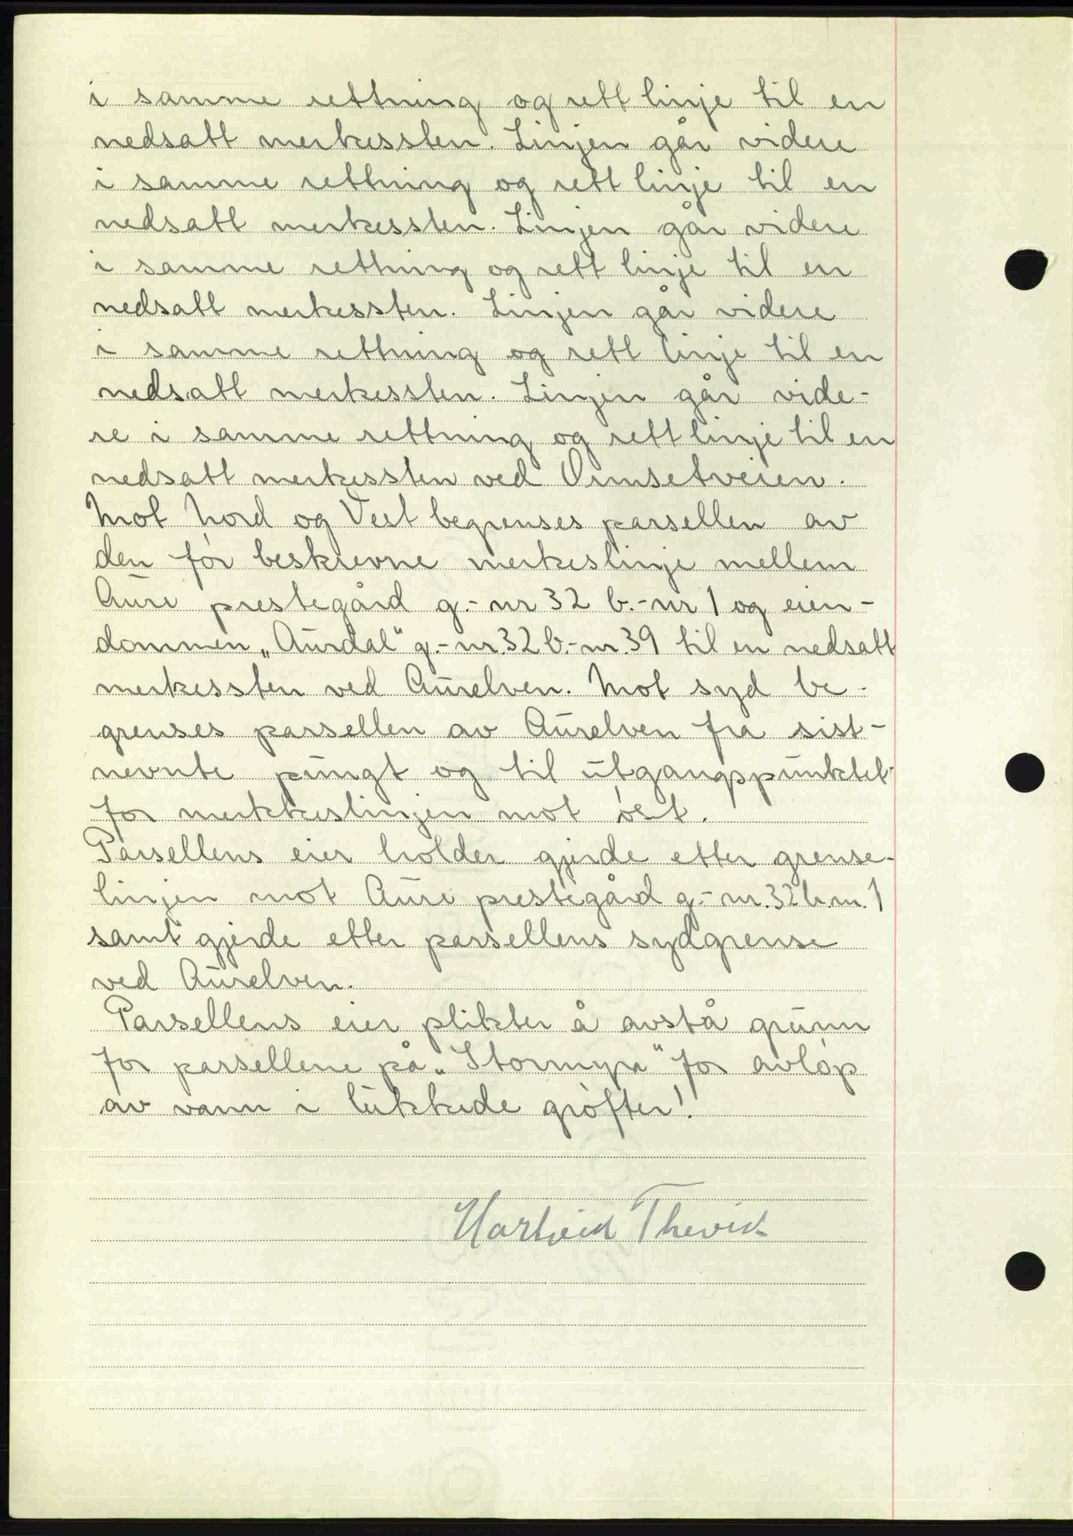 i samme rettning og rett linje til en
nedsatt merkessten. Linjen går videre
i samme rettning og rett linje til en
nedsatt merkessten. Linjen går videre
i samme rettning og rett linje til en
nedsatt merkessten. Linjen går videre
i samme rettning og rett linje til en
nedsatt merkessten. Linjen går vide-
re i samme rettning og rett linje til en
nedsatt merkessten ved Ormsetveien.
Mot Nord og Vest begrenses parsellen av
den før beskrevne merkeslinje mellem
Aure prestegård g.-nr 32 b.-nr 1 og eien-
dommen „Aurdal“ g.-nr. 32 b.-nr. 39 til en nedsatt
merkessten ved Aurelven. Mot syd be-
grenses parsellen av Aurelven fra sist-
nevnte pungt og til utgangspunktet
for merkkeslinjen mot øst.
Parsellens eier holder gjerde etter grense-
linjen mot Aure prestegård g.-nr. 32 b.nr. 1
samt gjerde etter parsellens sydgrense
ved Aurelven.
Parsellens eier plikter å avstå grunn
for parsellene på „Stormyra“ for avløp
av vann i lukkede grøfter!
Thevik